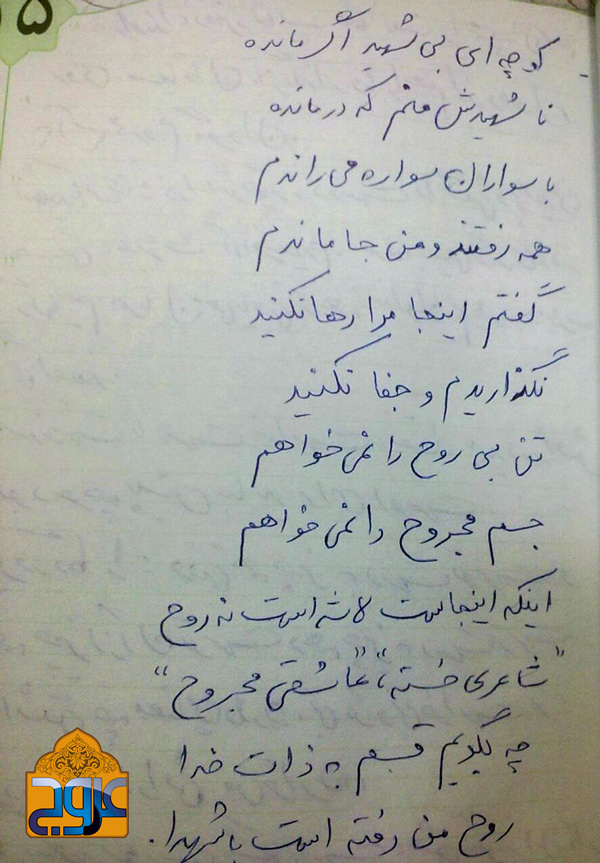 ۵
کوچه ای بی شهید اگر مانده
ناشهیدش منم که درمانده
با سواران سواره می راندم
همه رفتند و من جا ماندم
گفتم اینجا مرا رها نکنید
نگذاریدم و جفا نکنید
تن بی روح را نمی خواهم
جسم مجروح را نمی خواهم
اینکه اینجاست لاشه است نه روح
"شاعری خسته"، "عاشقی مجروح"
چه بگویم قسم به ذات خدا
روح من رفته است با شهدا.
عروج